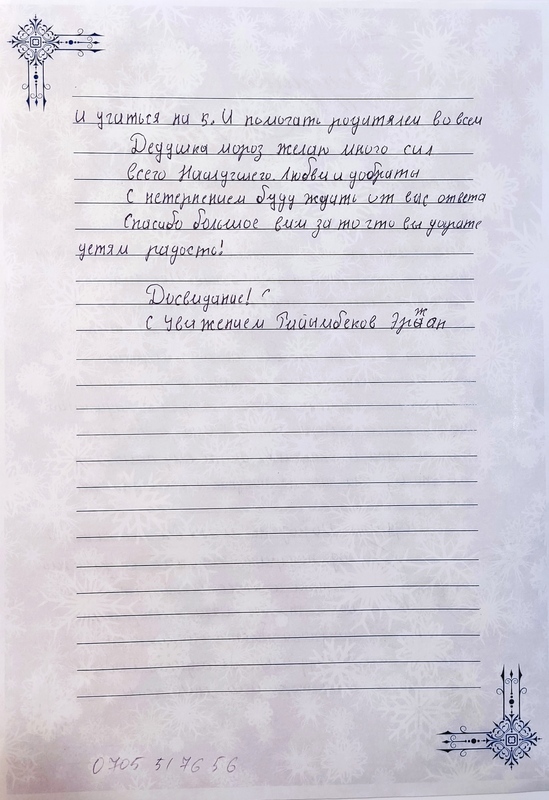 и учиться на 5. И помогать родителям во всем
Дедушка мороз желаю много сил
всего Наилучшего. Любви и добраты
С нетерпением буду ждать от вас ответа
Спасибо большое вам за то что вы дарите
детям радость!
Досвидание!
С уважением Тайымбеков Эржан
0705 517656